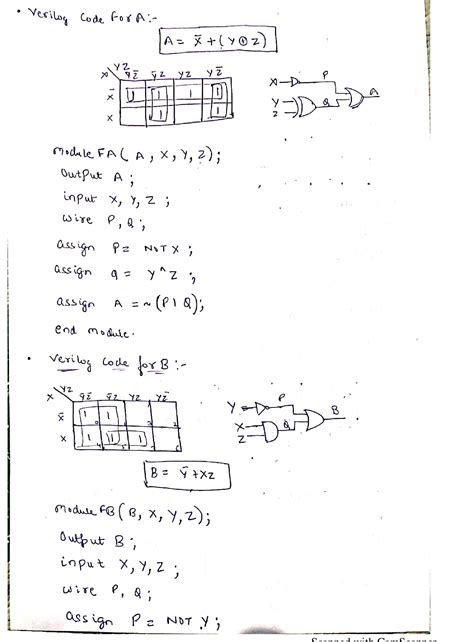 • Verilog Code For A:-
A = X̅ + (Y⊕Z)
YZ
X Y̅Z̅ Y̅Z YZ YZ̅
X̅ 1 1 1 1
X 1 1
X P A
Y Q
Z
Module FA( A, X, Y, Z);
Output A;
input X, Y, Z;
wire P, Q;
assign P= NOT X;
assign Q = Y^Z;
assign A = ~(P|Q);
end module.
• Verilog Code for B:-
YZ
X Y̅Z̅ Y̅Z YZ YZ̅
X̅ 1 1
X 1 1 1
Y P B
X Q
Z
B = Y̅ + XZ
Module FB( B, X, Y, Z);
Output B;
input X, Y, Z;
wire P, Q;
assign P = NOT Y;
Scanned with CamScanner